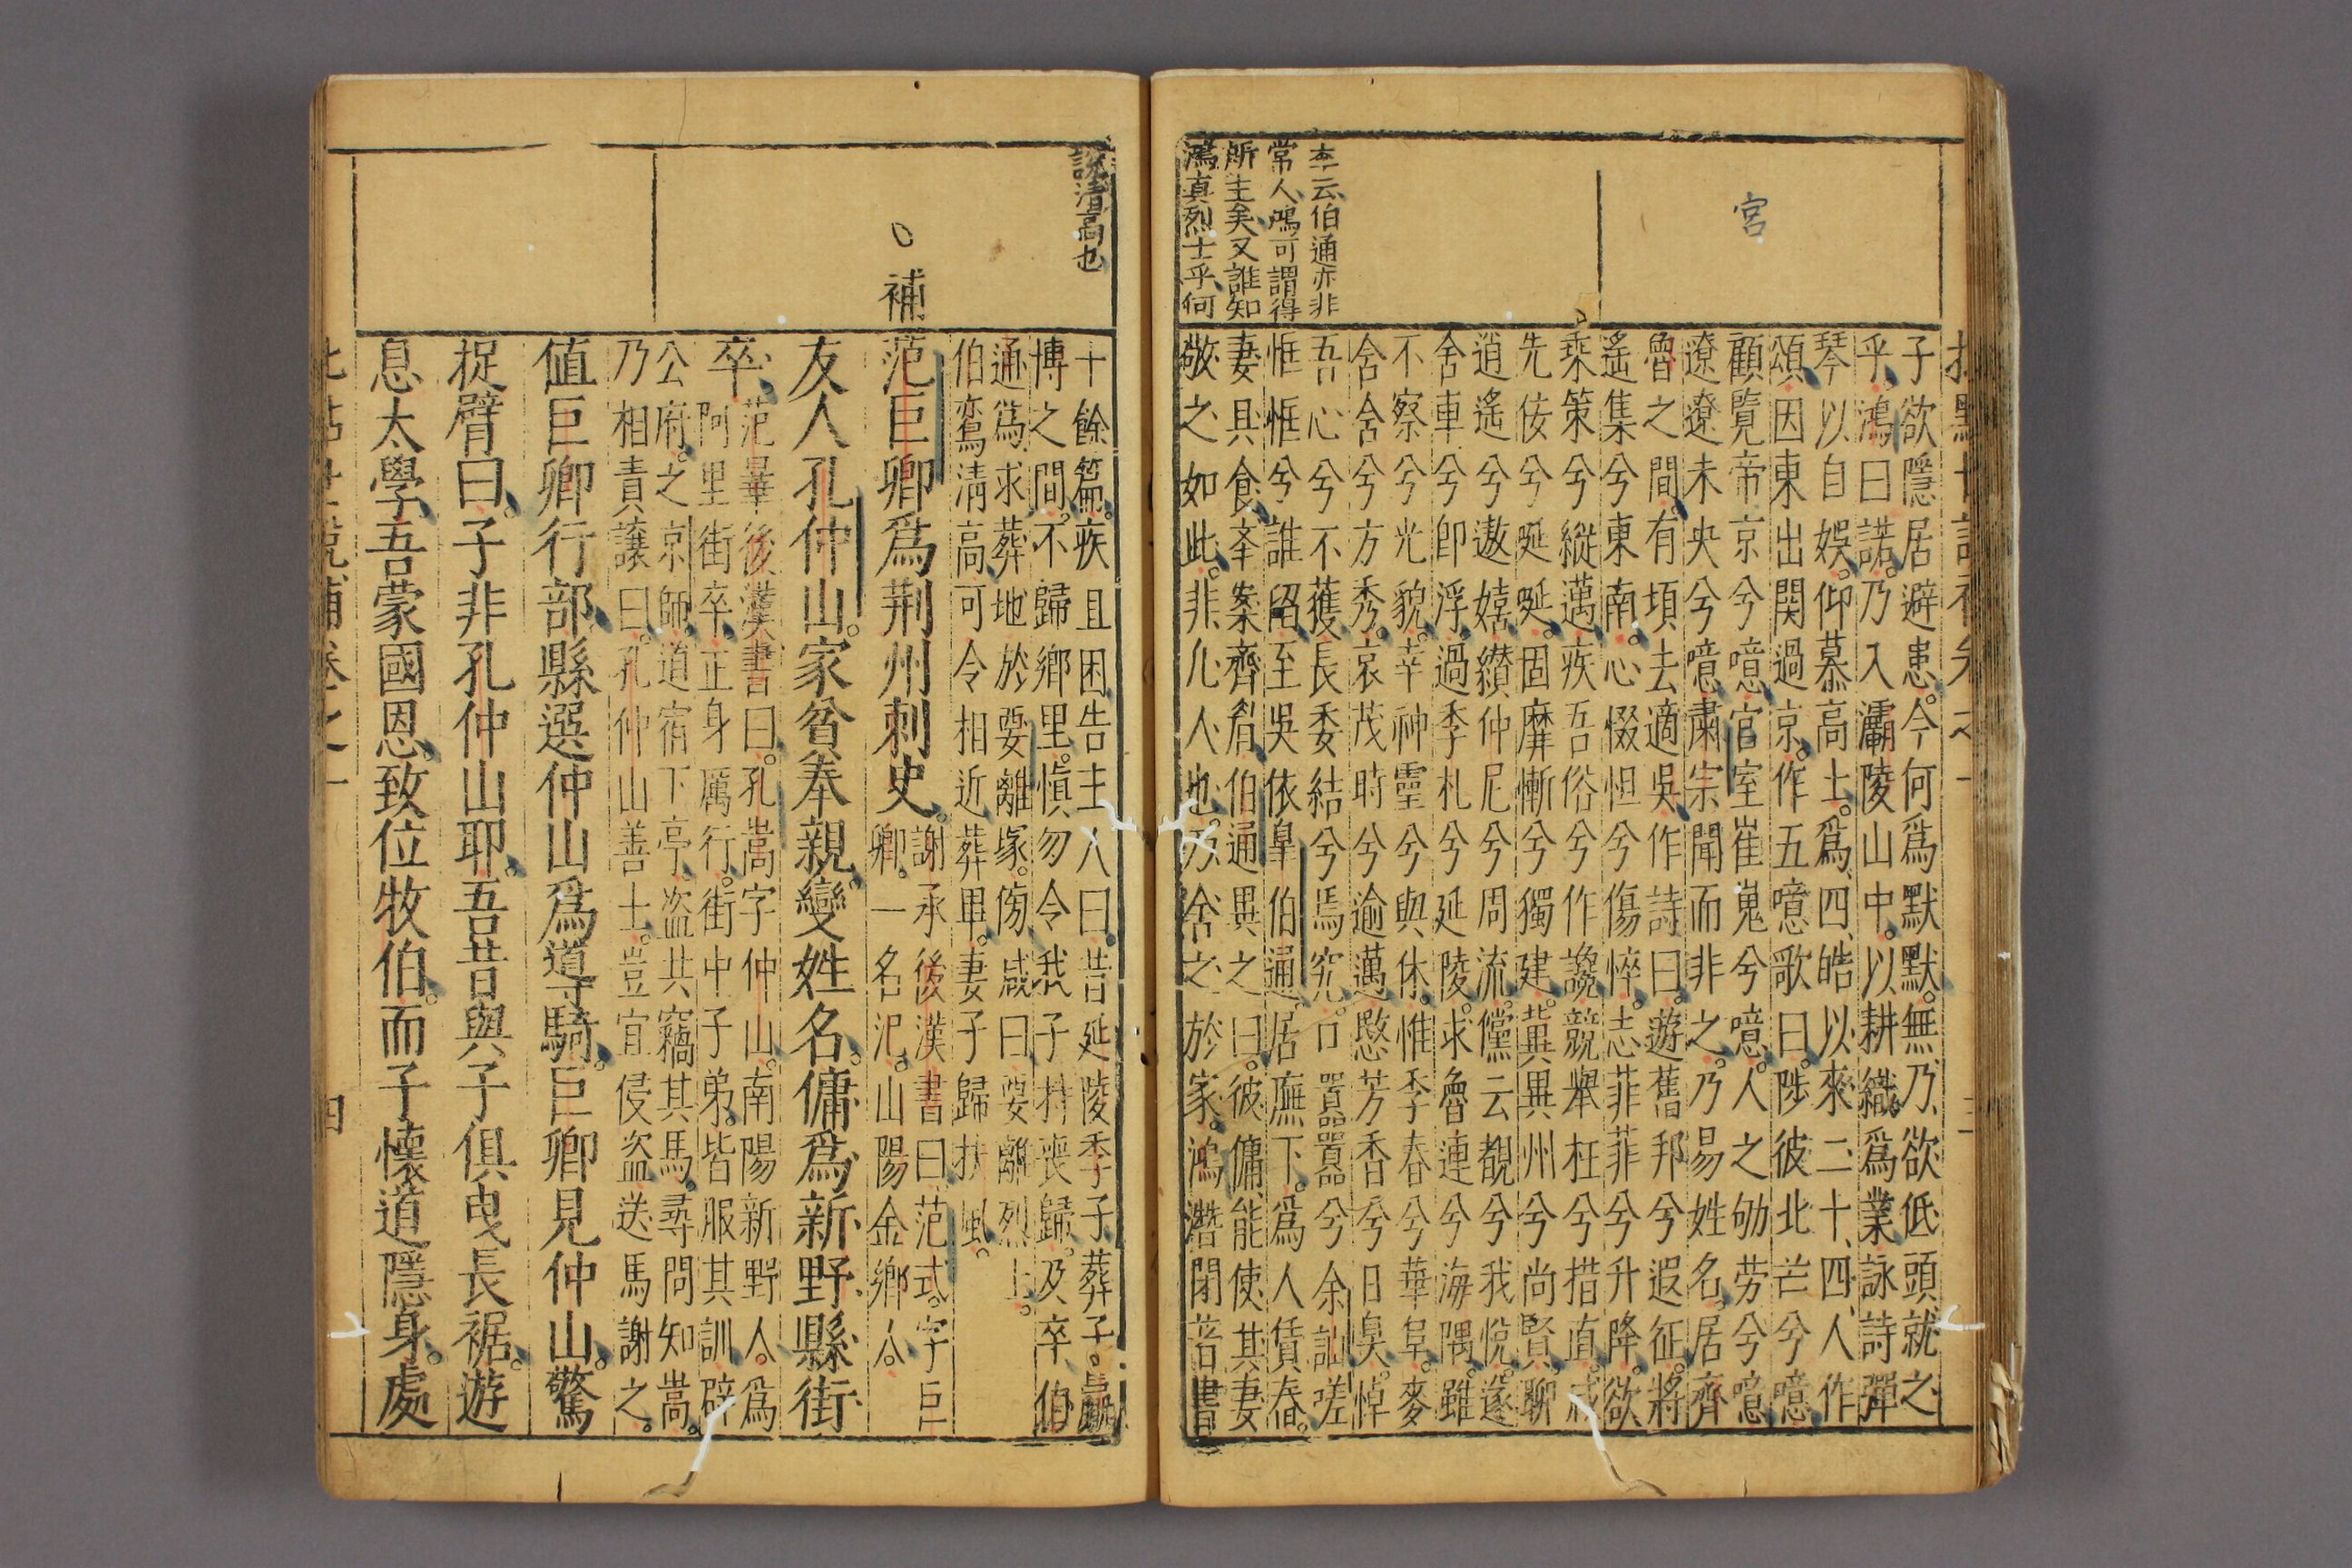 宮
子欲隱居避患。今何爲默默。無乃欲低頭就之
乎。鴻曰諾。乃入灞陵山中。以耕織爲業。詠詩彈
琴以自娛。仰慕高士。爲四皓以來二十四人作
頌。因東出関過京。作五噫歌曰。陟彼北芒兮噫
顧覽帝京兮噫。官室崔嵬兮噫。人之劬劳兮噫
遼遼未央兮噫。肅宗聞而非之。乃易姓名。居齊
魯之間。有頃去適吳。作詩曰。遊舊邦兮遐征。將
遙集兮東南。心惙怛兮傷悴。志菲菲兮升降。欲
乘策兮縱邁。疾吾俗兮作讒。競舉枉兮措直。咸
先佞兮唌唌。固靡慚兮獨建。冀異州兮尚賢。聊
逍遙兮遨嬉。纘仲尼兮周流。儻云覩兮我悅。遂
舍車兮卽浮。過季札兮延陵。求魯連兮海隅。雖
不察兮光貌。幸神靈兮與休。惟季春兮華阜。麥
含含兮方秀。哀茂時兮逾邁。愍芳香兮日臭。悼
吾心兮不獲。長委結兮焉究。口嚚嚚兮余訕。嗟
恇恇兮誰留。至吳依皐伯通。居廡下。爲人賃舂。
妻具食。奉案齊眉。伯通異之曰。彼傭能使其妻
敬之如此。非凡人也。乃舍之於家。鴻潛閉著書
李云伯通亦非
常人鴻可謂得
所主矣又誰知
鴻真烈士乎何
說清高也
十餘篇。疾且困。告主人曰。昔延陵季子葬子嬴
博之間。不歸鄉里。愼勿令我子持喪歸。及卒。伯
通爲求葬地於要離塚。傍咸曰。要離烈士。
伯鸞清高。可令相近葬畢。妻子歸扶風。
補
范巨卿爲荆州刺史。
謝承後漢書曰。范式。字巨
卿。一名汜。山陽金鄉人。
友人孔仲山。家貧奉親。變姓名。傭爲新野縣街
卒。
范曄後漢書曰。孔嵩字仲山。南陽新野人。爲
阿里街卒。正身厲行。街中子弟。皆服其訓。辟
公府。之京師。道宿下亭。盗共竊其馬。尋問知嵩。
乃相責讓曰。孔仲山善士。豈宜侵盗。送馬謝之。
値巨卿行部。縣選仲山爲導騎。巨卿見仲山。驚
捉臂曰。子非孔仲山耶。吾昔與子俱曳長裾。遊
息太學。吾蒙國恩。致位牧伯。而子懷道隱身。處